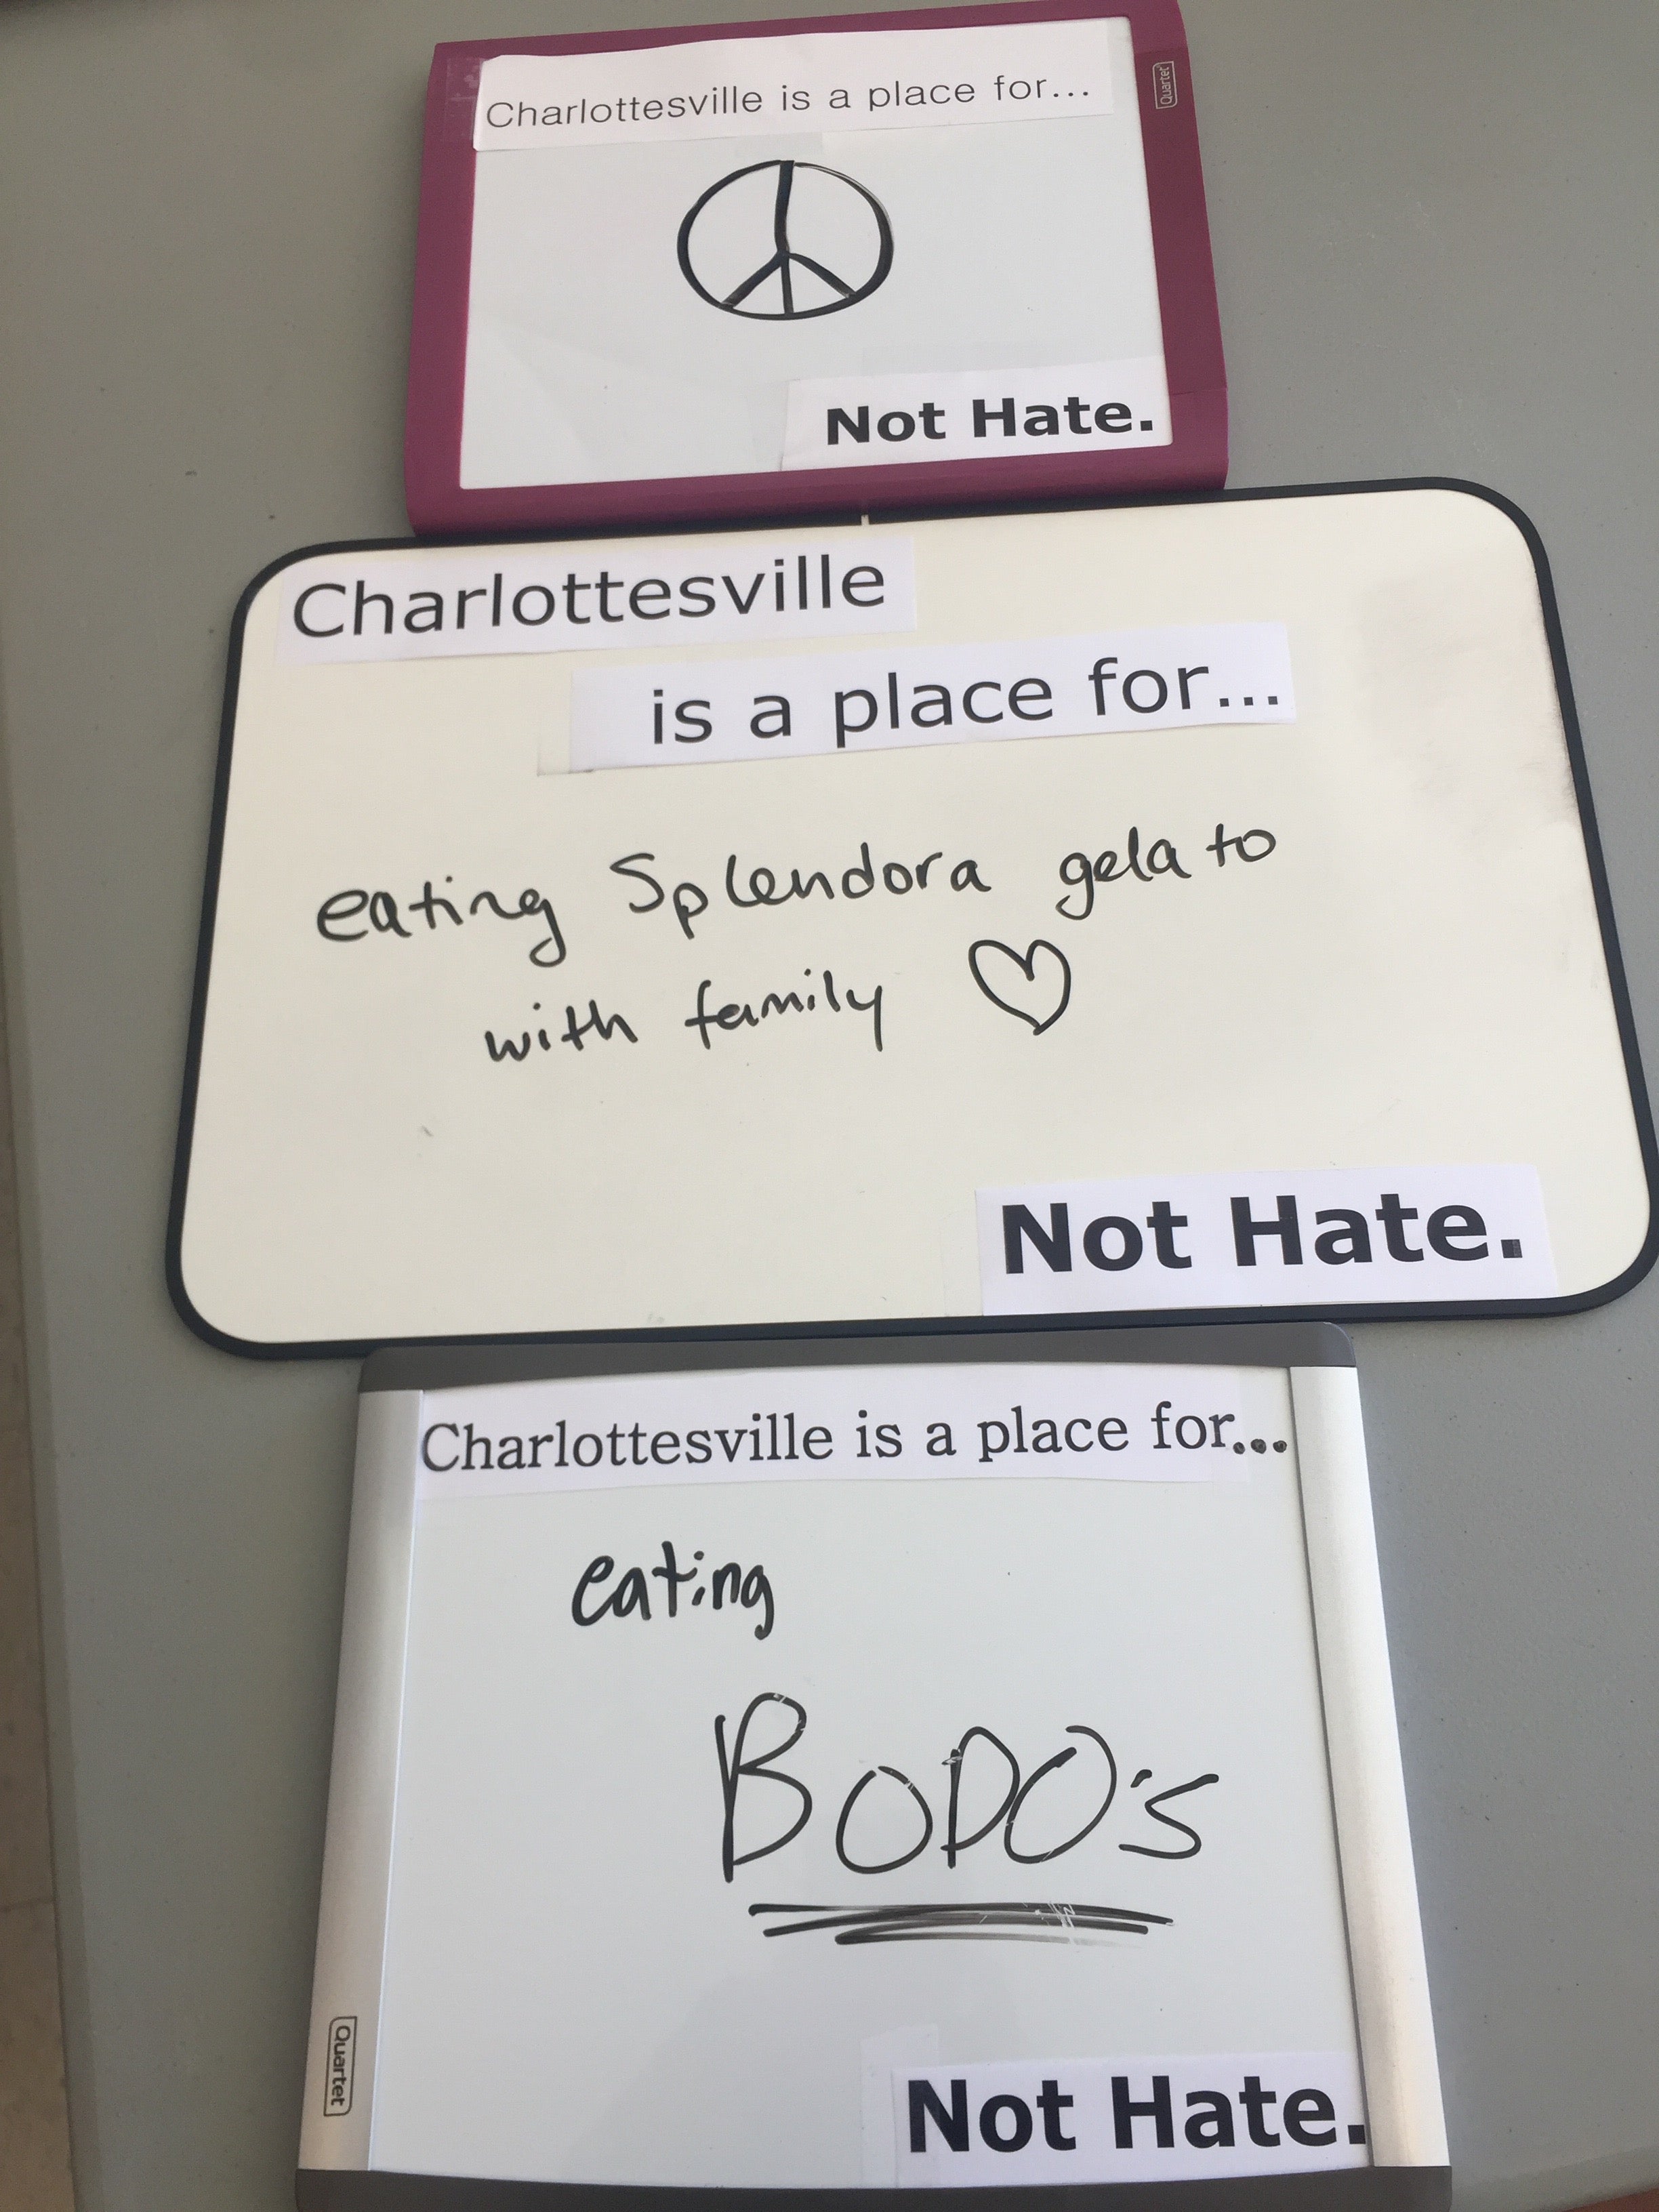 Charlottesville is a place for...
Quartet
Not Hate.
Charlottesville
is a place for...
eating Splendora gelato
with family
Not Hate.
Charlottesville is a place for...
eating
BODO's
Quartet
Not Hate.